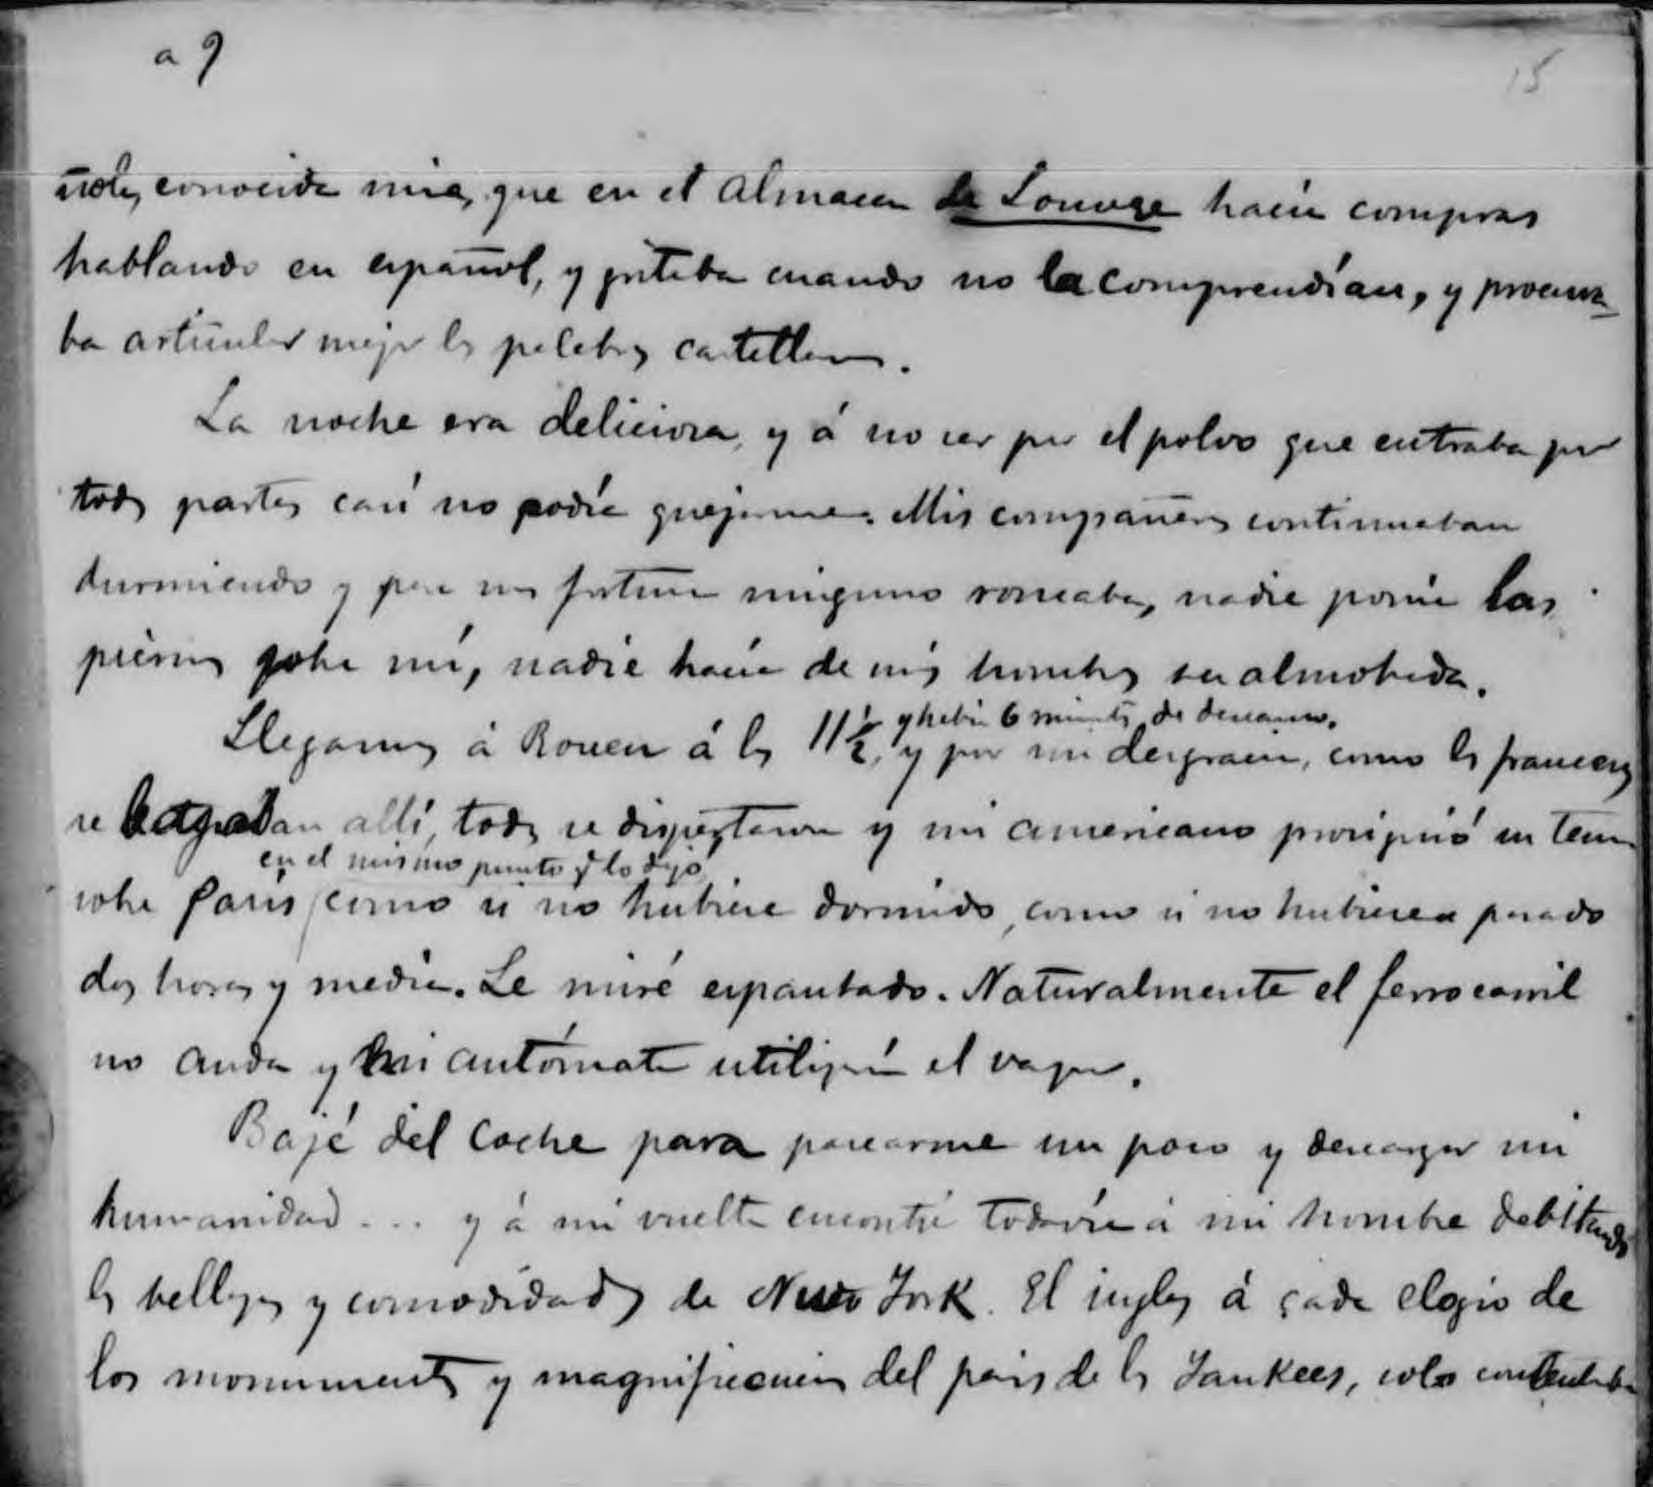 a 9
15
ñola, conocida mia, que en el almacen de Louvre hacía compras
hablando en español, y gritaba cuando no la comprendían, y procura-
ba articular mejor las palabras castellanas.
La noche era deliciosa, y á no ser por el polvo que entraba por
todas partes casi no podía quejarme. Mis compañeros continuaban
durmiendo y para mi fortuna ninguno roncaba, nadie ponía las
piernas sobre mí, nadie hacía de mis hombros su almohada.
y había 6 minutos de descanso.
Llegamos á Rouen á las 11 1/2, y por mi desgracia, como los franceses
se bajaban allí, todos se dispertaron y mi americano prosiguió su tema
en el mismo punto q lo dejó
sobre Paris como si no hubiese dormido, como si no hubiesen pasado
dos horas y media. Le miré espantado. Naturalmente el ferrocarril
no anda y mi autómata utilizará el vapor.
Bajé del coche para pasearme un poco y descargar mi
humanidad... y á mi vuelta encontré todavía á mi hombre debitando
las bellezas y comodidades de New York. El ingles á cada elogio de
los monumentos y magnificencias del pais de los Yankees, solo contestaba